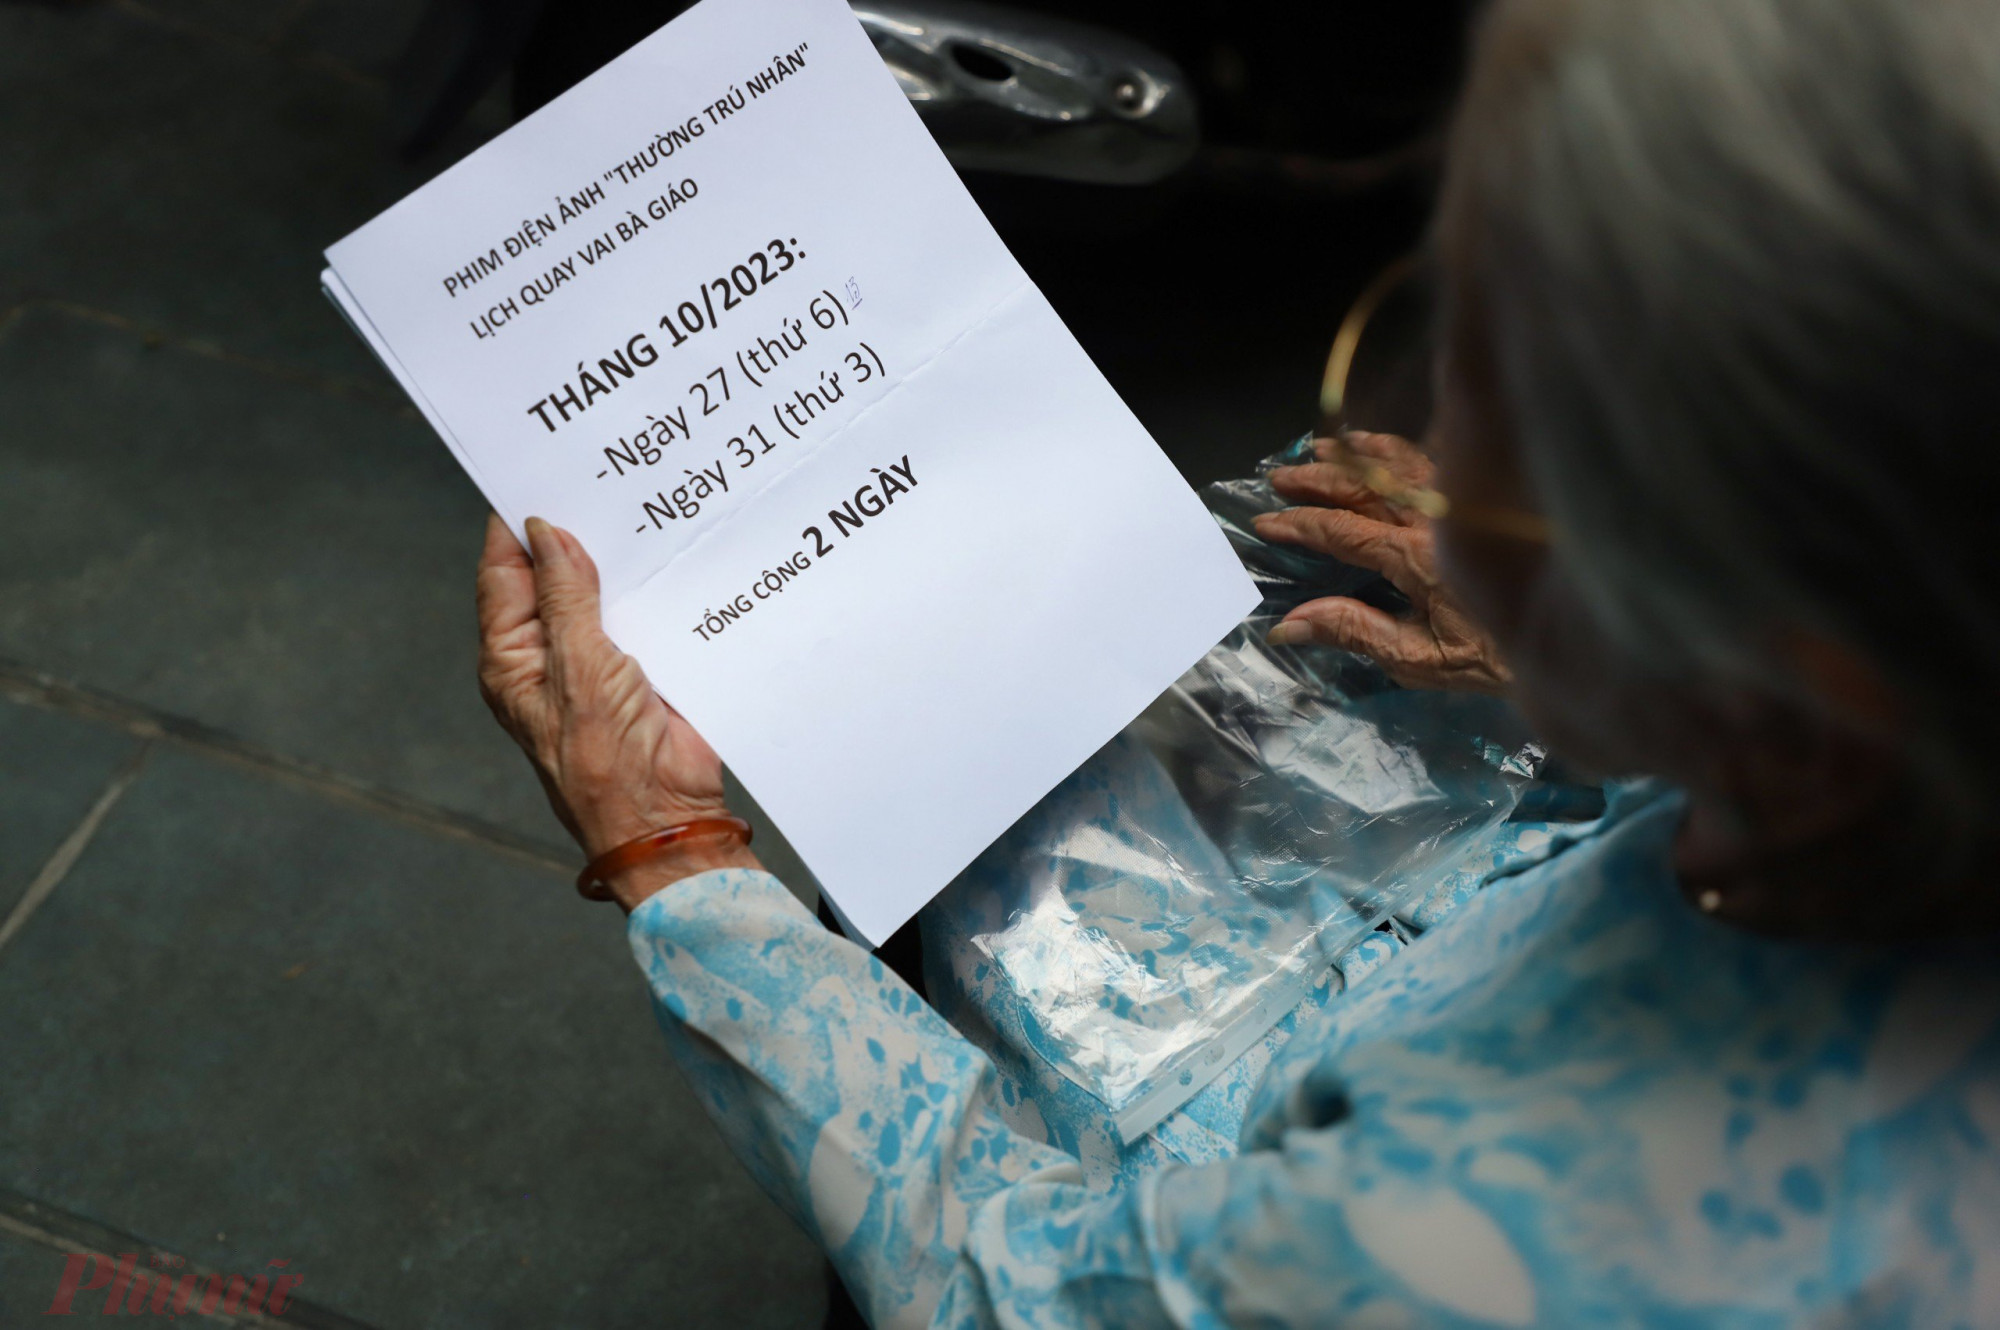 PHIM ĐIỆN ẢNH "THƯỜNG TRÚ NHÂN"
LỊCH QUAY VAI BÀ GIÁO
THÁNG 10/2023:
-Ngày 27 (thứ 6)
-Ngày 31 (thứ 3)
TỔNG CỘNG 2 NGÀY
Phụ nữ